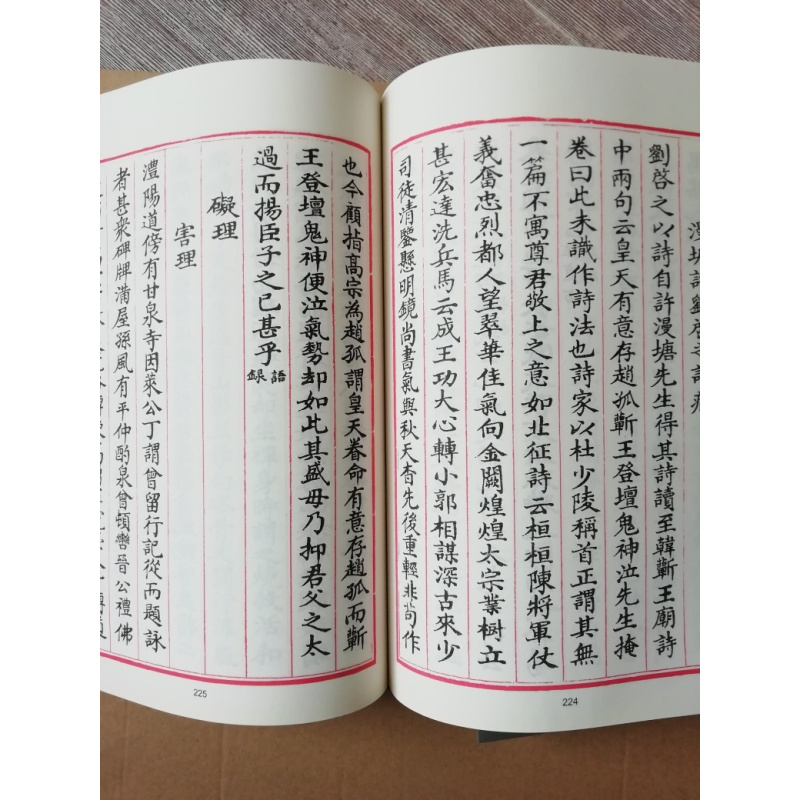 漫塘評劉啓之詩
劉啓之以詩自許漫塘先生得其詩讀至韓蘄王廟詩
中兩句云皇天有意存趙孤蘄王登壇鬼神泣先生掩
卷曰此未識作詩法也詩家以杜少陵稱首正謂其無
一篇不寓尊君敬上之意如北征詩云桓桓陳將軍仗
義奮忠烈都人望翠華佳氣向金闕煌煌太宗業樹立
甚宏達洗兵馬云成王功大心轉小郭相謀深古來少
司徒清鑒懸明鏡尚書氣與秋天杳先後重輕非苟作
224
也今顧指高宗為趙孤謂皇天眷命有意存趙孤而蘄
王登壇鬼神便泣氣勢却如此其盛毋乃抑君父之太
過而揚臣子之已甚乎語録
礙理
害理
澧陽道傍有甘泉寺因萊公丁謂曾留行記從而題詠
者甚衆碑牌滿屋孫風有平仲酌泉曾頓轡晉公禮佛
225